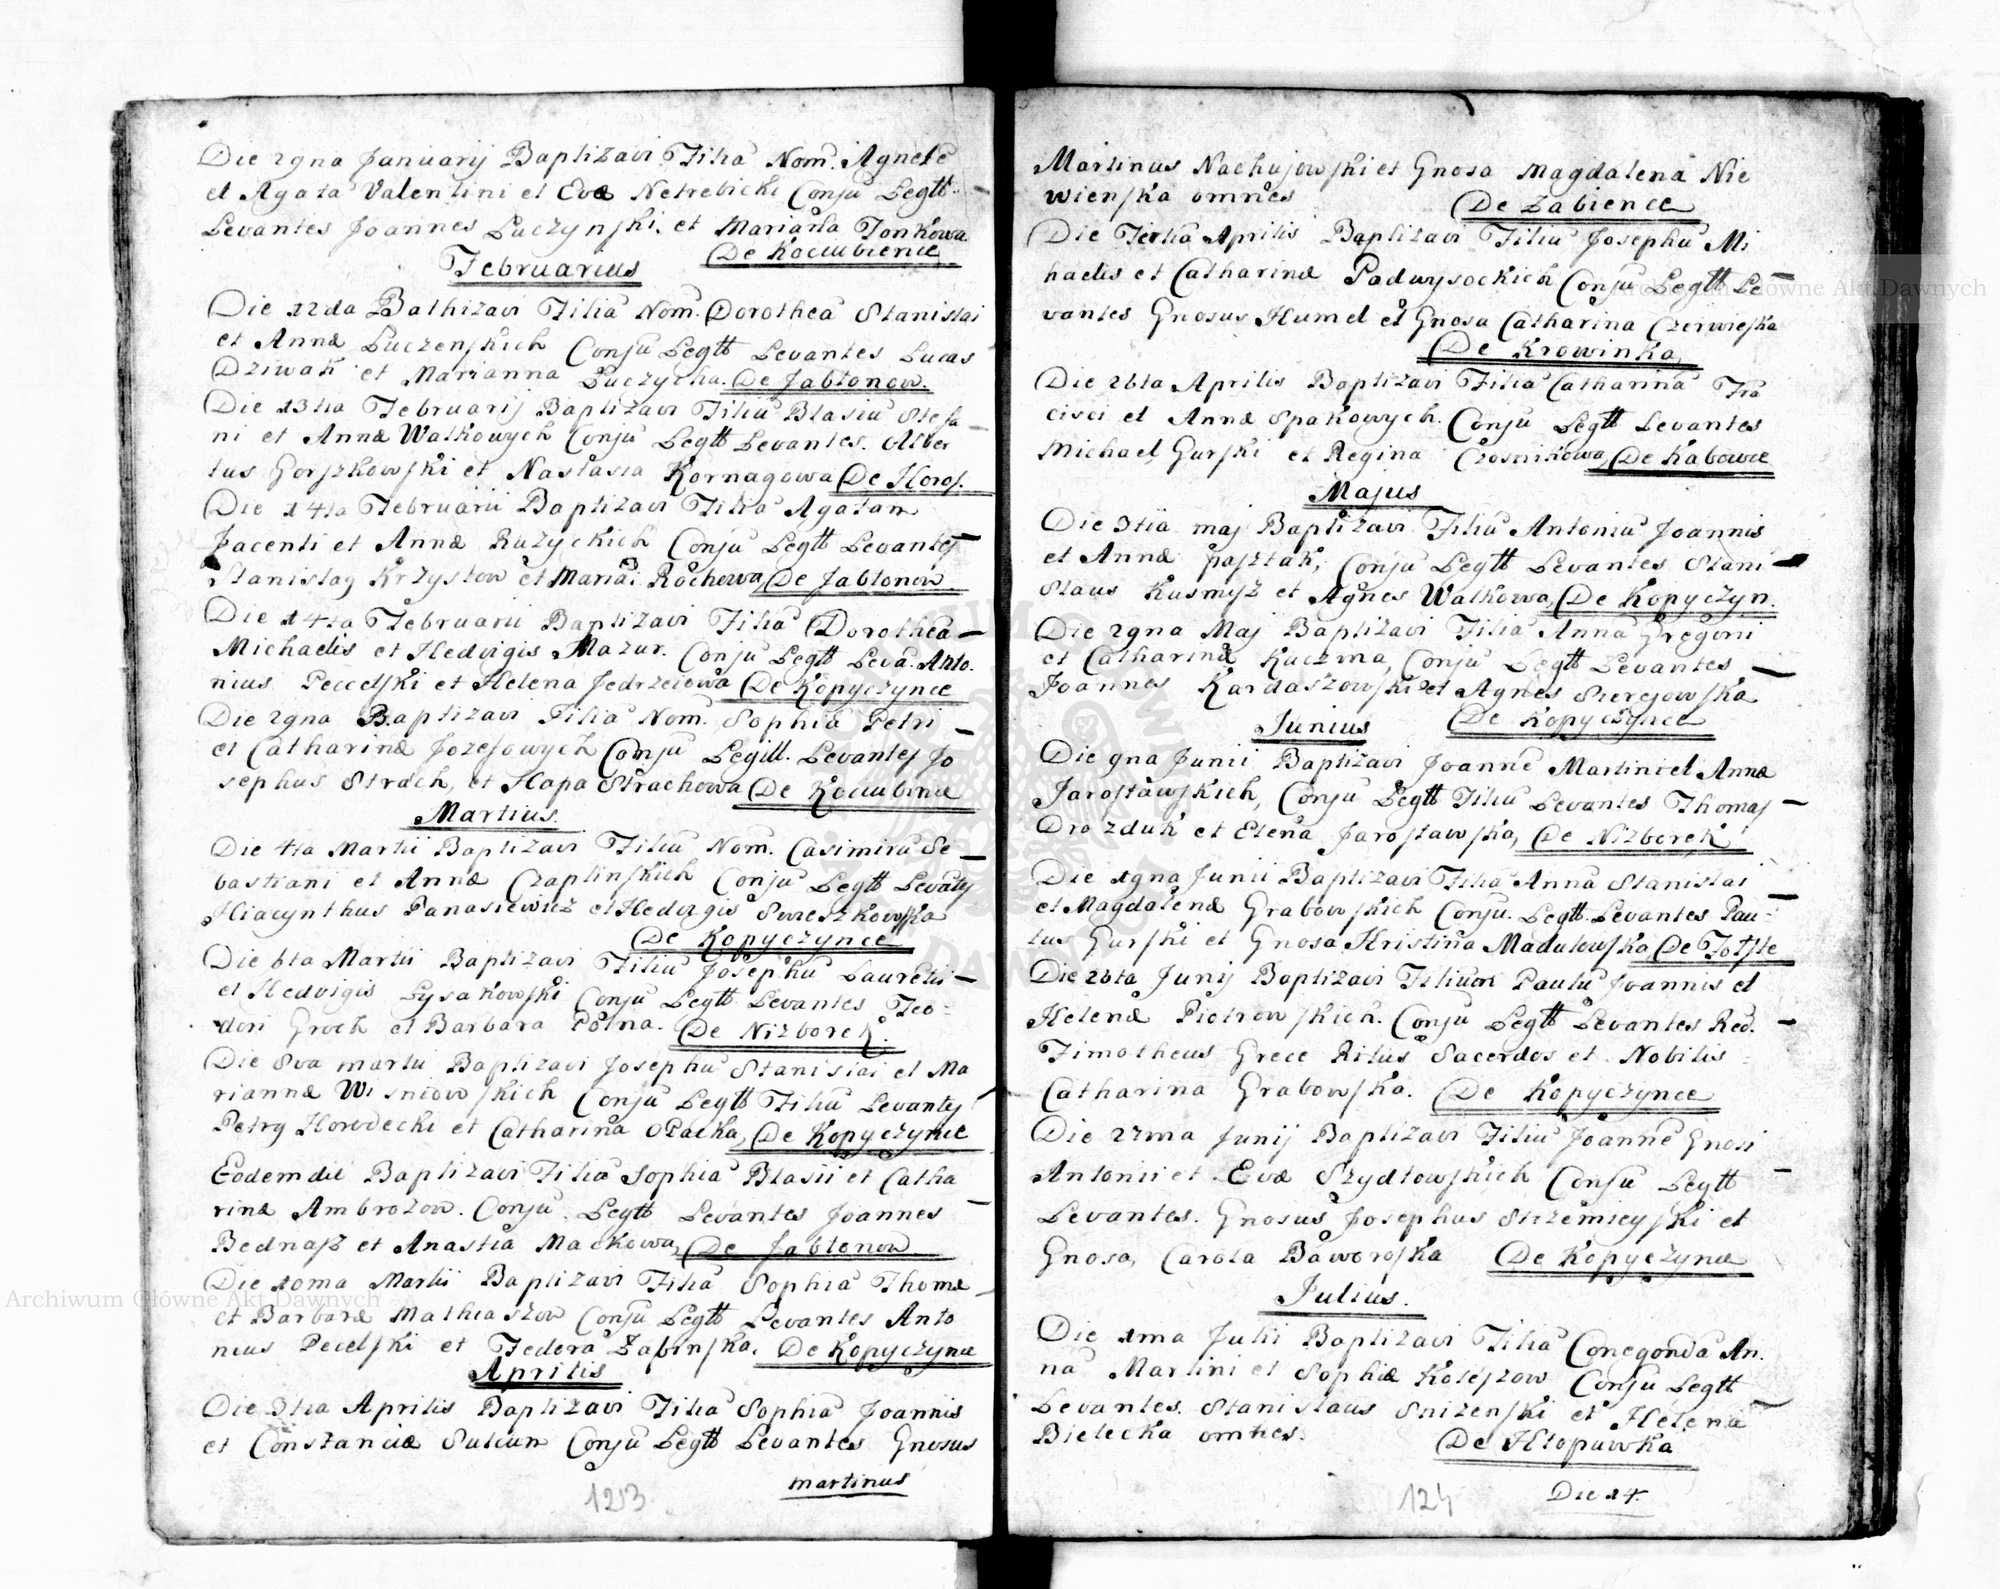 Die 29na Januarij Baptizavi Filiã Nom. Agnetẽ
et Agatã Valentini et Evæ Netrebicki Conjũ Legtt.
Levantes Joannes Luczynski. et Marianna Jonkowa
De Kociubience
Februarius
Die 12da Bathizavi Filiã Nom. Dorotheã Stanislai
et Annæ Luczenskich Conjũ Legtt Levantes Lucas
Dziwak et Marianna Luczycha. De Jabłonow.
Die 13tia Februarij Baptizavi Filiũ Blasiũ Stefa
ni et Annæ Walkowych Conjũ Legtt Levantes. Alber
tus Gorszkowski et Nastasia Kornagowa De Horos.
Die 14ta Februarii Baptizavi Filiã Agatam
Jacenti et Annæ Ruzyckich Conjũ Legtt Levantes
Stanislaz Krzysztow et Mariã. Rochowa De Jabłonow.
Die 14ta Februarii Baptizavi Filiã Dorotheã
Michaelis et Hedvigis Mazur. Conjũ Legtt Leva. Anto.
nius Pecelski et Helena Jedrzeiowa De Kopyczynce
Die 29na Baptizavi Filiã Nom. Sophiã Petri
et Catharinæ Jozefowych Comjũ Legitt. Levantes Jo
sephus Strach, et Hapa Strachowa De Kociubince
Martius.
Die 4ta Martii Baptizavi Filiũ Nom. Casimirũ Se
bastiani et Annæ Czaplinskich Conjũ Legtt Levates
Hiacynthus Panasiewicz et Hedvigis Swieszkowska
De Kopyczynce
Die 6ta Martii Baptizavi Filiũ Josephũ Laurẽtii
et Hedvigis Łysakowski Conjũ Legtt Levantes Teo
dori Groch et Barbara Polna. De Nizborek.
Die 8va martii Baptizavi Josephũ Stanislai et Ma
riannæ Wisniowskich Conjũ Legtt Filiũ Levantes
Petry Horodecki et Catharina Opacka, De Kopyczynce
Eodem die Baptizavi Filiã Sophiã Blasii et Catha
rinæ Ambrozow. Conjũ. Legtt Levantes Joannes
Bednasz et Anastia Mackowa, De Jabłonow
Die 10ma Martii Baptizavi Filiã Sophiã Thomæ
et Barbaræ Mathiaszow Conjũ Legtt Levantes Anto
nius Pecelski et Fedora Zabinska. De Kopyczynce
Aprilis
Die 3tia Aprilis Baptizavi Filiã Sophiã Joannis
et Constanciæ Sulciun Conjũ Legtt Levantes Gnosus
martinus
123
Martinus Nachujowski et Gnosa Magdalena Nie
wienska omnes
De Zabience
Die Tertia Aprilis Baptizavi Filiũ Josephũ Mi
haelis et Catharinæ Padwysockich Conjũ Legtt Le
vantes Gnosus Humel et Gnosa Catharina Czerwieska
De Krowinka,
Die 26ta Aprilis Baptizavi Filiã Catharinã Frã
cisci et Annæ Spakowych. Conjũ Legtt Levantes
Michael, Gurski et Regina Czosnikowa, De Kabowce
Majus
Die 3tia maj Baptizavi Filiũ Antoniũ Joannis
et Annæ pasztak, Conjũ Legtt Levantes Stani
Slaus Kusmysz et Agnes Walkowa, De Kopyczyn.
Die 29na Maj Baptizavi Filiã Annã Gregorii
et Catharinæ Kuczma, Conjũ Legtt Levantes
Joannes Kardaszowski et Agnes Sieregowska
Junius
De Kopyczynce
Die 9na Junii Baptizavi Joannẽ Martini et Annæ
Jarosławskich, Conjũ Legtt Filiũ Levantes Thomas
Drozduk et Elena Jarosławska, De Nizborek
Die 19na Junii Baptizavi Filiã Annã Stanislai
et Magdalenæ Grabowskich Conjũ. Legtt. Levantes Pau
lus Gurski et Gnosa Kristina Madalowska, De Totste
Die 26ta Junij Baptizavi Filium Paulũ Joannis et
Helenæ Piotrowskich. Conjũ Legtt Levantes Red.
Timotheus Grece Ritus Sacerdos et Nobilis
Catharina Grabowska. De Kopyczynce
Die 27ma Junij Baptizavi Filiũ Joannẽ Gnosi
Antonii et Evæ Szydłowskich Conjũ Legtt
Levantes. Gnosus Josephus Strzemieyski et
Gnosa, Carola Baworoska De Kopyczynce
Julius.
Die 1ma Julii Baptizavi Filiã Conegondã An.
nã Martini et Sophiæ Koleszow Conjũ Legtt
Levantes. Stanislaus Snizenski et Helena
Bielecka omnes.
De Hłopuwka
124
Die 14.
Archiwum Główne Akt Dawnych
Archiwum Główne Akt Dawnych